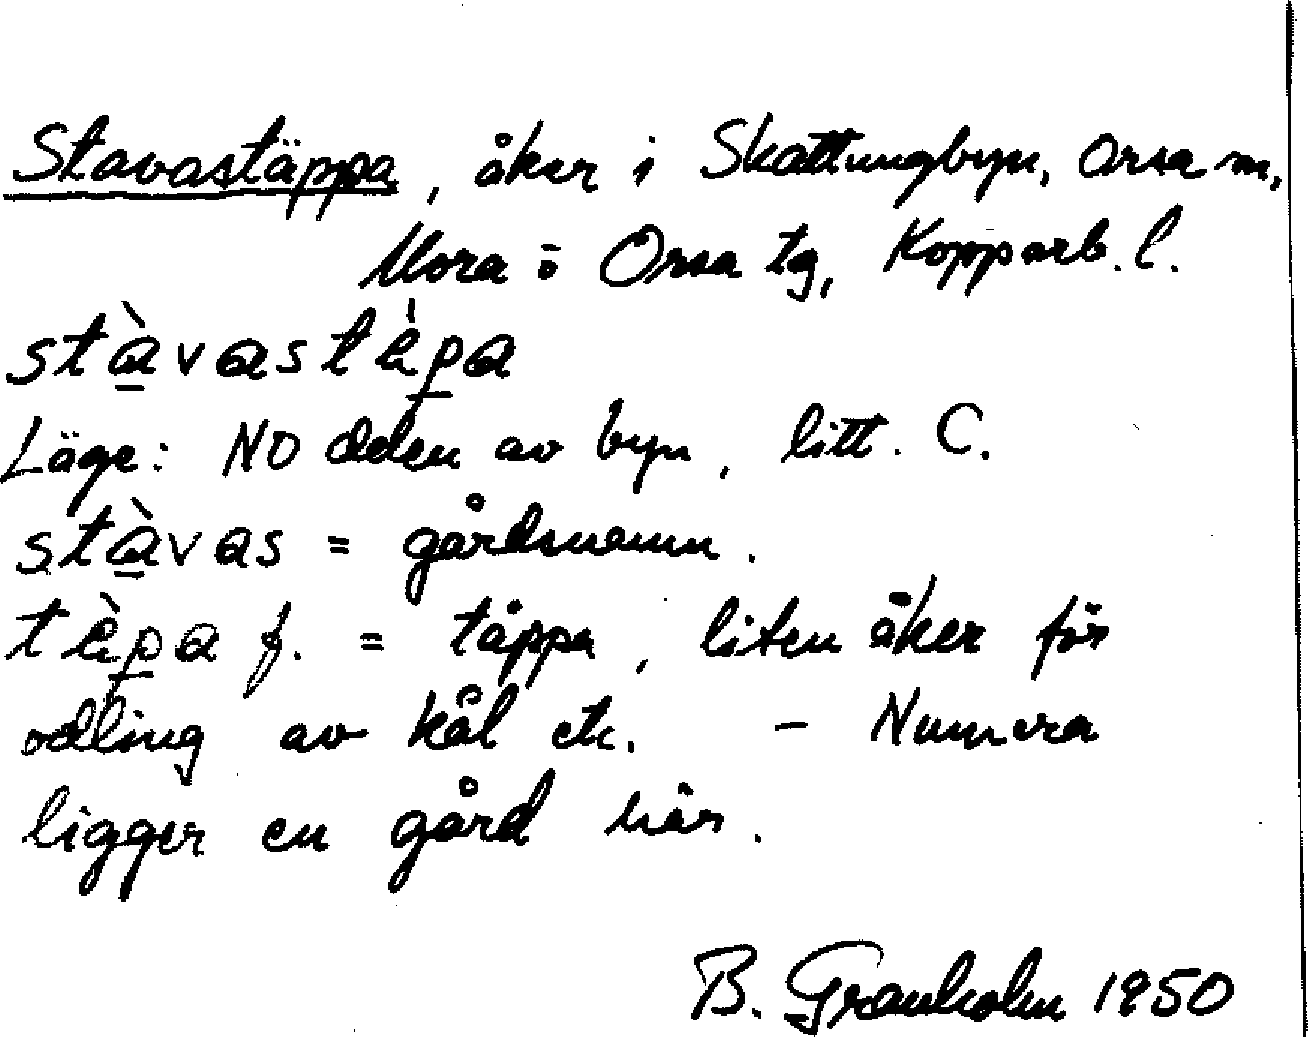 Stavastäppa, åker i Skattungbyn, Orsa m,
Mora o Orsa tg, Kopparb. l.
stàvastèpa
Läge: NO delen av byn, litt. C.
stàvas = gårdsnamn.
tèpa f. = täppa, liten åker för
odling av kål etc. – Numera
ligger en gård här.
B. Granholm 1950